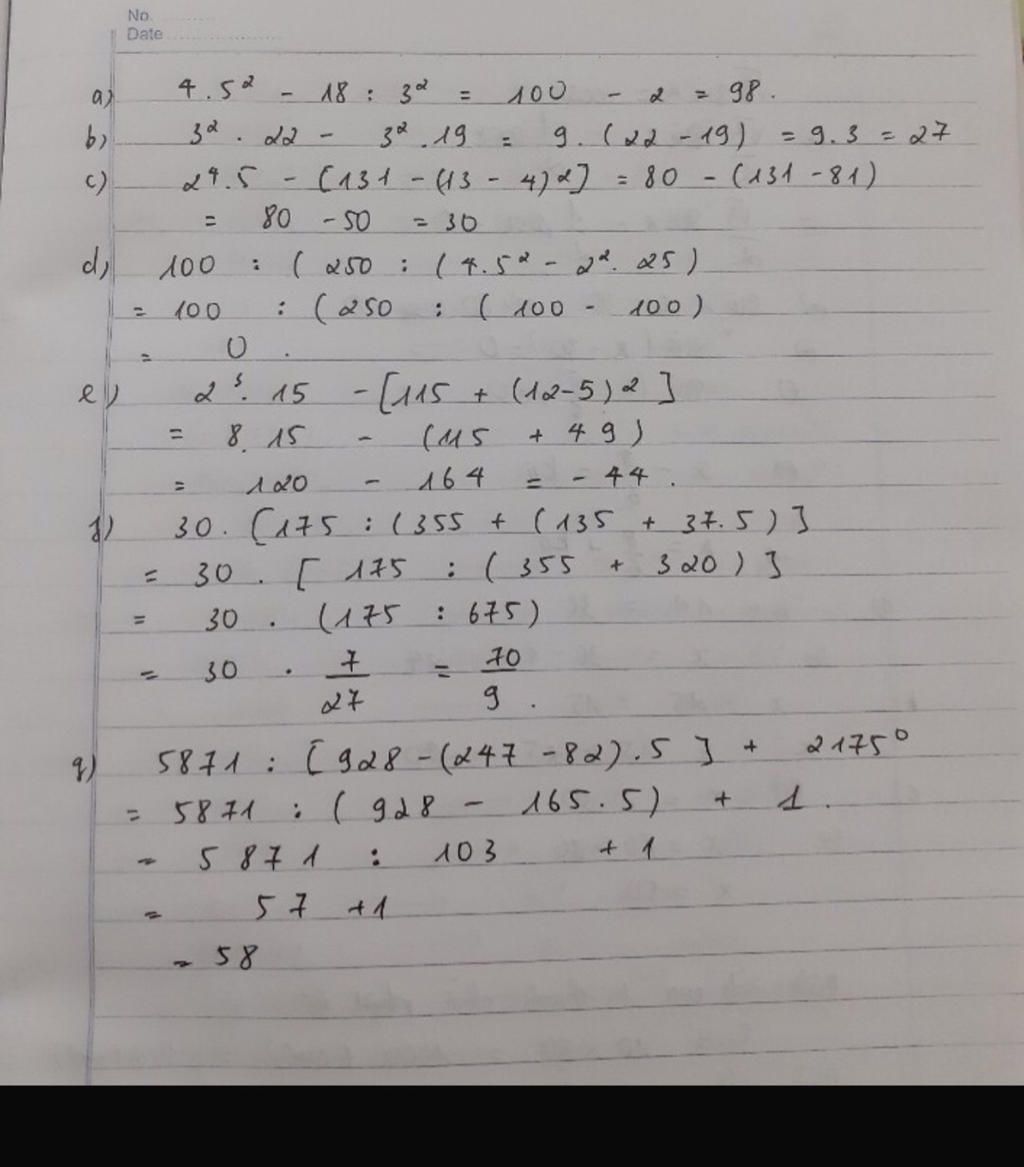 No. ............
Date ........................
a) 4.5² - 18 : 3² = 100 - 2 = 98.
b) 3² . 22 - 3² . 19 = 9. (22 - 19) = 9.3 = 27
c) 2⁴.5 - [131 - (13 - 4)²] = 80 - (131 - 81)
= 80 - 50 = 30
d) 100 : ( 250 : ( 4.5² - 2². 25 )
= 100 : ( 250 : ( 100 - 100 )
= 0 .
e) 2³. 15 - [115 + (12-5)²]
= 8. 15 - (115 + 49)
= 120 - 164 = - 44 .
f) 30. [175 : (355 + (135 + 37.5)]
= 30 . [ 175 : ( 355 + 320 ) ]
= 30 . (175 : 675)
= 30 . 7/27 = 70/9 .
g) 5871 : [928 - (247 - 82).5 ] + 2175⁰
= 5871 : ( 928 - 165.5) + 1 .
= 5871 : 103 + 1
= 57 + 1
= 58